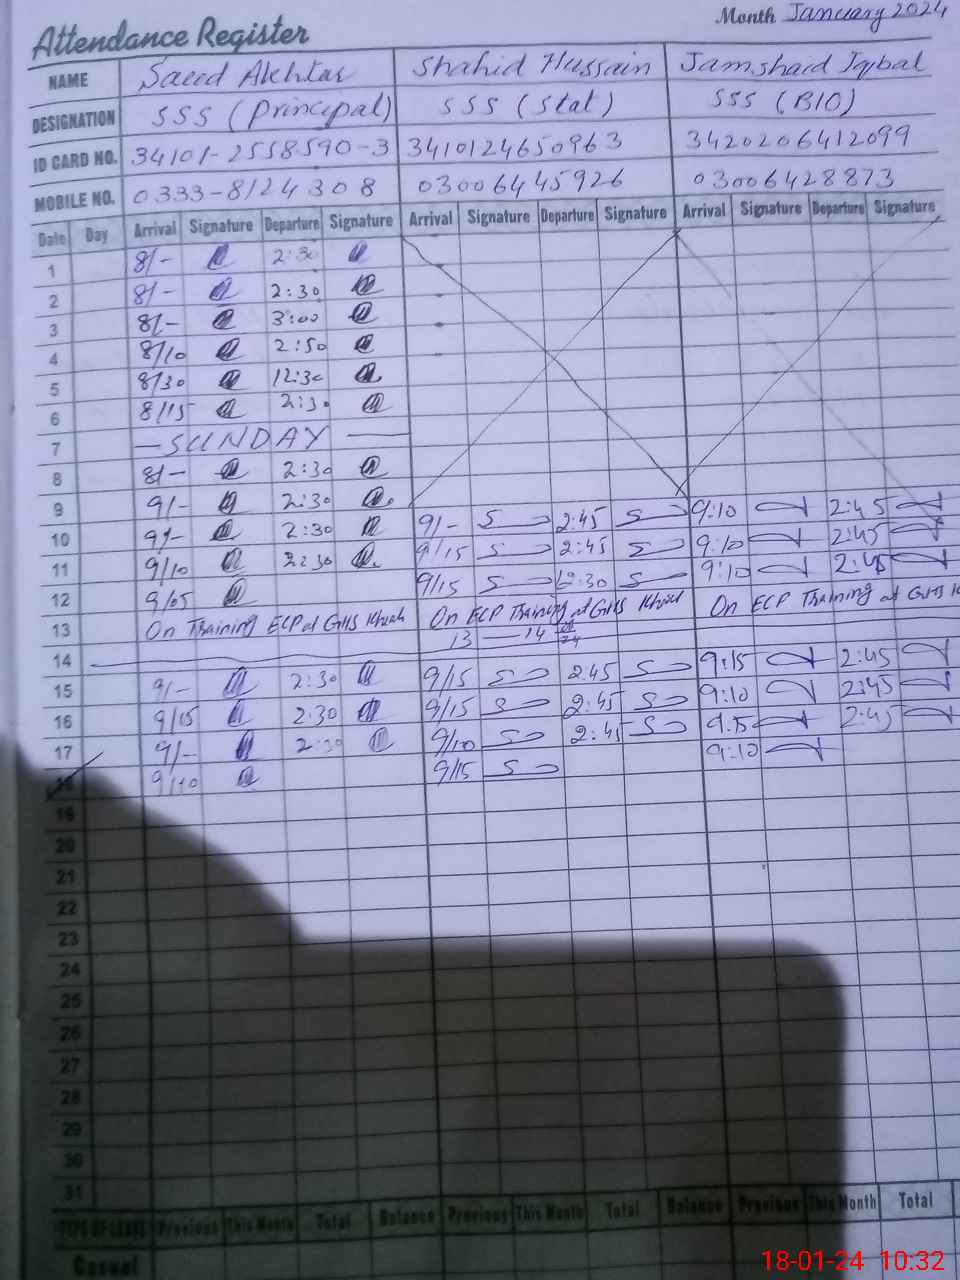 Month January 2024
Attendance Register
NAME Saeed Akhtar Shahid Hussain Jamshaid Iqbal
DESIGNATION SSS (Principal) SSS (Stat) SSS (BIO)
ID CARD NO. 34101-2558590-3 3410124650963 3420206412099
MOBILE NO. 0333-8124308 03006445926 03006428873
Date Day Arrival Signature Departure Signature Arrival Signature Departure Signature Arrival Signature Departure Signature
1 8/- 2:30
2 8/- 2:30
3 8/- 3:00
4 8/10 2:50
5 8/30 12:30
6 8/15 2:30
7 — SUNDAY —
8 8/- 2:30
9 9/- 2:30
10 9/- 2:30 9/- 2:45 9:10 2:45
11 9/10 2:30 9/15 2:45 9:10 2:45
12 9/05 9/15 12:30 9:10 2:45
13 On Training ECP at GHS On ECP Training at GHS On ECP Training at GHS
13 — 14
14
15 9/- 2:30 9/15 2:45 9:15 2:45
16 9/15 2:30 9/15 2:45 9:10 2:45
17 9/- 2:30 9/10 2:45 9:15 2:45
18 9/10 9/15 9:10
19
20
21
22
23
24
25
26
27
28
29
30
31
TYPE OF LEAVE Previous This Month Total Balance Previous This Month Total Balance Previous This Month Total
Casual
18-01-24 10:32